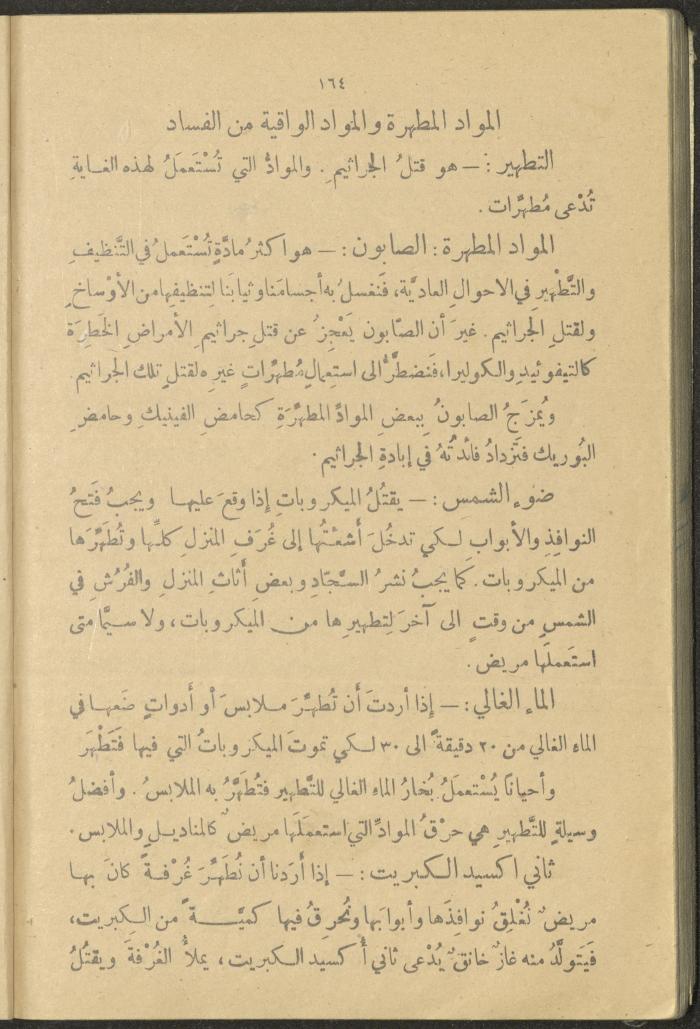 ١٦٤
المواد المطهرة والمواد الواقية من الفساد
التطهير : — هو قتلُ الجراثيمِ. والموادُّ التي تُسْتَعمَلُ لهذه الغايةِ
تُدْعى مُطهِّرات .
المواد المطهرة : الصابون : — هو اكثرُ مادَّةٍ تُسْتَعملُ في التَّنظيفِ
والتَّطْهيرِ في الاحوالِ العاديَّة، فَنغسلُ به أجسامَنا وثيابَنا لتنظيفِها من الأوْساخِ
ولقتلِ الجراثيم . غيرَ أن الصّابون يَعْجِزُ عن قتلِ جراثيمِ الأمراضِ الخَطِرَة
كالتيفوئيدِ والكوليرا، فَنضطَرُّ الى استِعمالِ مُطهِّراتٍ غيرِه لقتلِ تلك الجراثيم .
ويُمزَجُ الصابونُ ببعضِ الموادِّ المطهِّرَةِ كحامضِ الفينيكِ وحامضِ
البُوريك فتَزدادُ فائدتُهُ في إبادةِ الجراثيم .
ضوء الشمس : — يقتُلُ الميكروباتِ إذا وقعَ عليها ويجبُ فَتحُ
النوافذِ والأبوابِ لكي تدخُلَ أشعَّتُها إلى غُرَفِ المنزلِ كلِّها وتُطهِّرَها
من الميكروبات . كما يجبُ نشرُ السجّادِ وبعضِ أثاثِ المنزلِ والفُرُشِ في
الشمسِ من وقتٍ الى آخرَ لِتطهيرِها من الميكروبات ، ولا سيَّما متى
استَعملَها مريض .
الماء الغالي : — إذا أردتَ أن تُطهِّرَ ملابسَ أو أدواتٍ ضَعها في
الماء الغالي من ٢٠ دقيقةً الى ٣٠ لكي تموتَ الميكروباتُ التي فيها فَتَطْهَرَ
وأحياناً يُسْتعملُ بُخارُ الماء الغالي للتَّطهير فتُطَهَّرُ به الملابسُ . وأفضلُ
وسيلةٍ للتَّطهيرِ هي حرْقُ الموادِّ التي استعمَلَها مريضٌ كالمناديلِ والملابس .
ثاني اكسيد الكبريت : — إذا أرَدنا أن نُطهِّرَ غُرْفةً كانَ بها
مريضٌ نُغْلِقُ نوافِذَها وأبوابَها ونُحرِقُ فيها كميَّةً من الكِبريت،
فيَتولَّدُ منه غازٌ خانقٌ يُدْعى ثاني أُكسيد الكبريت ، يملأُ الغُرْفةَ ويقتُلُ